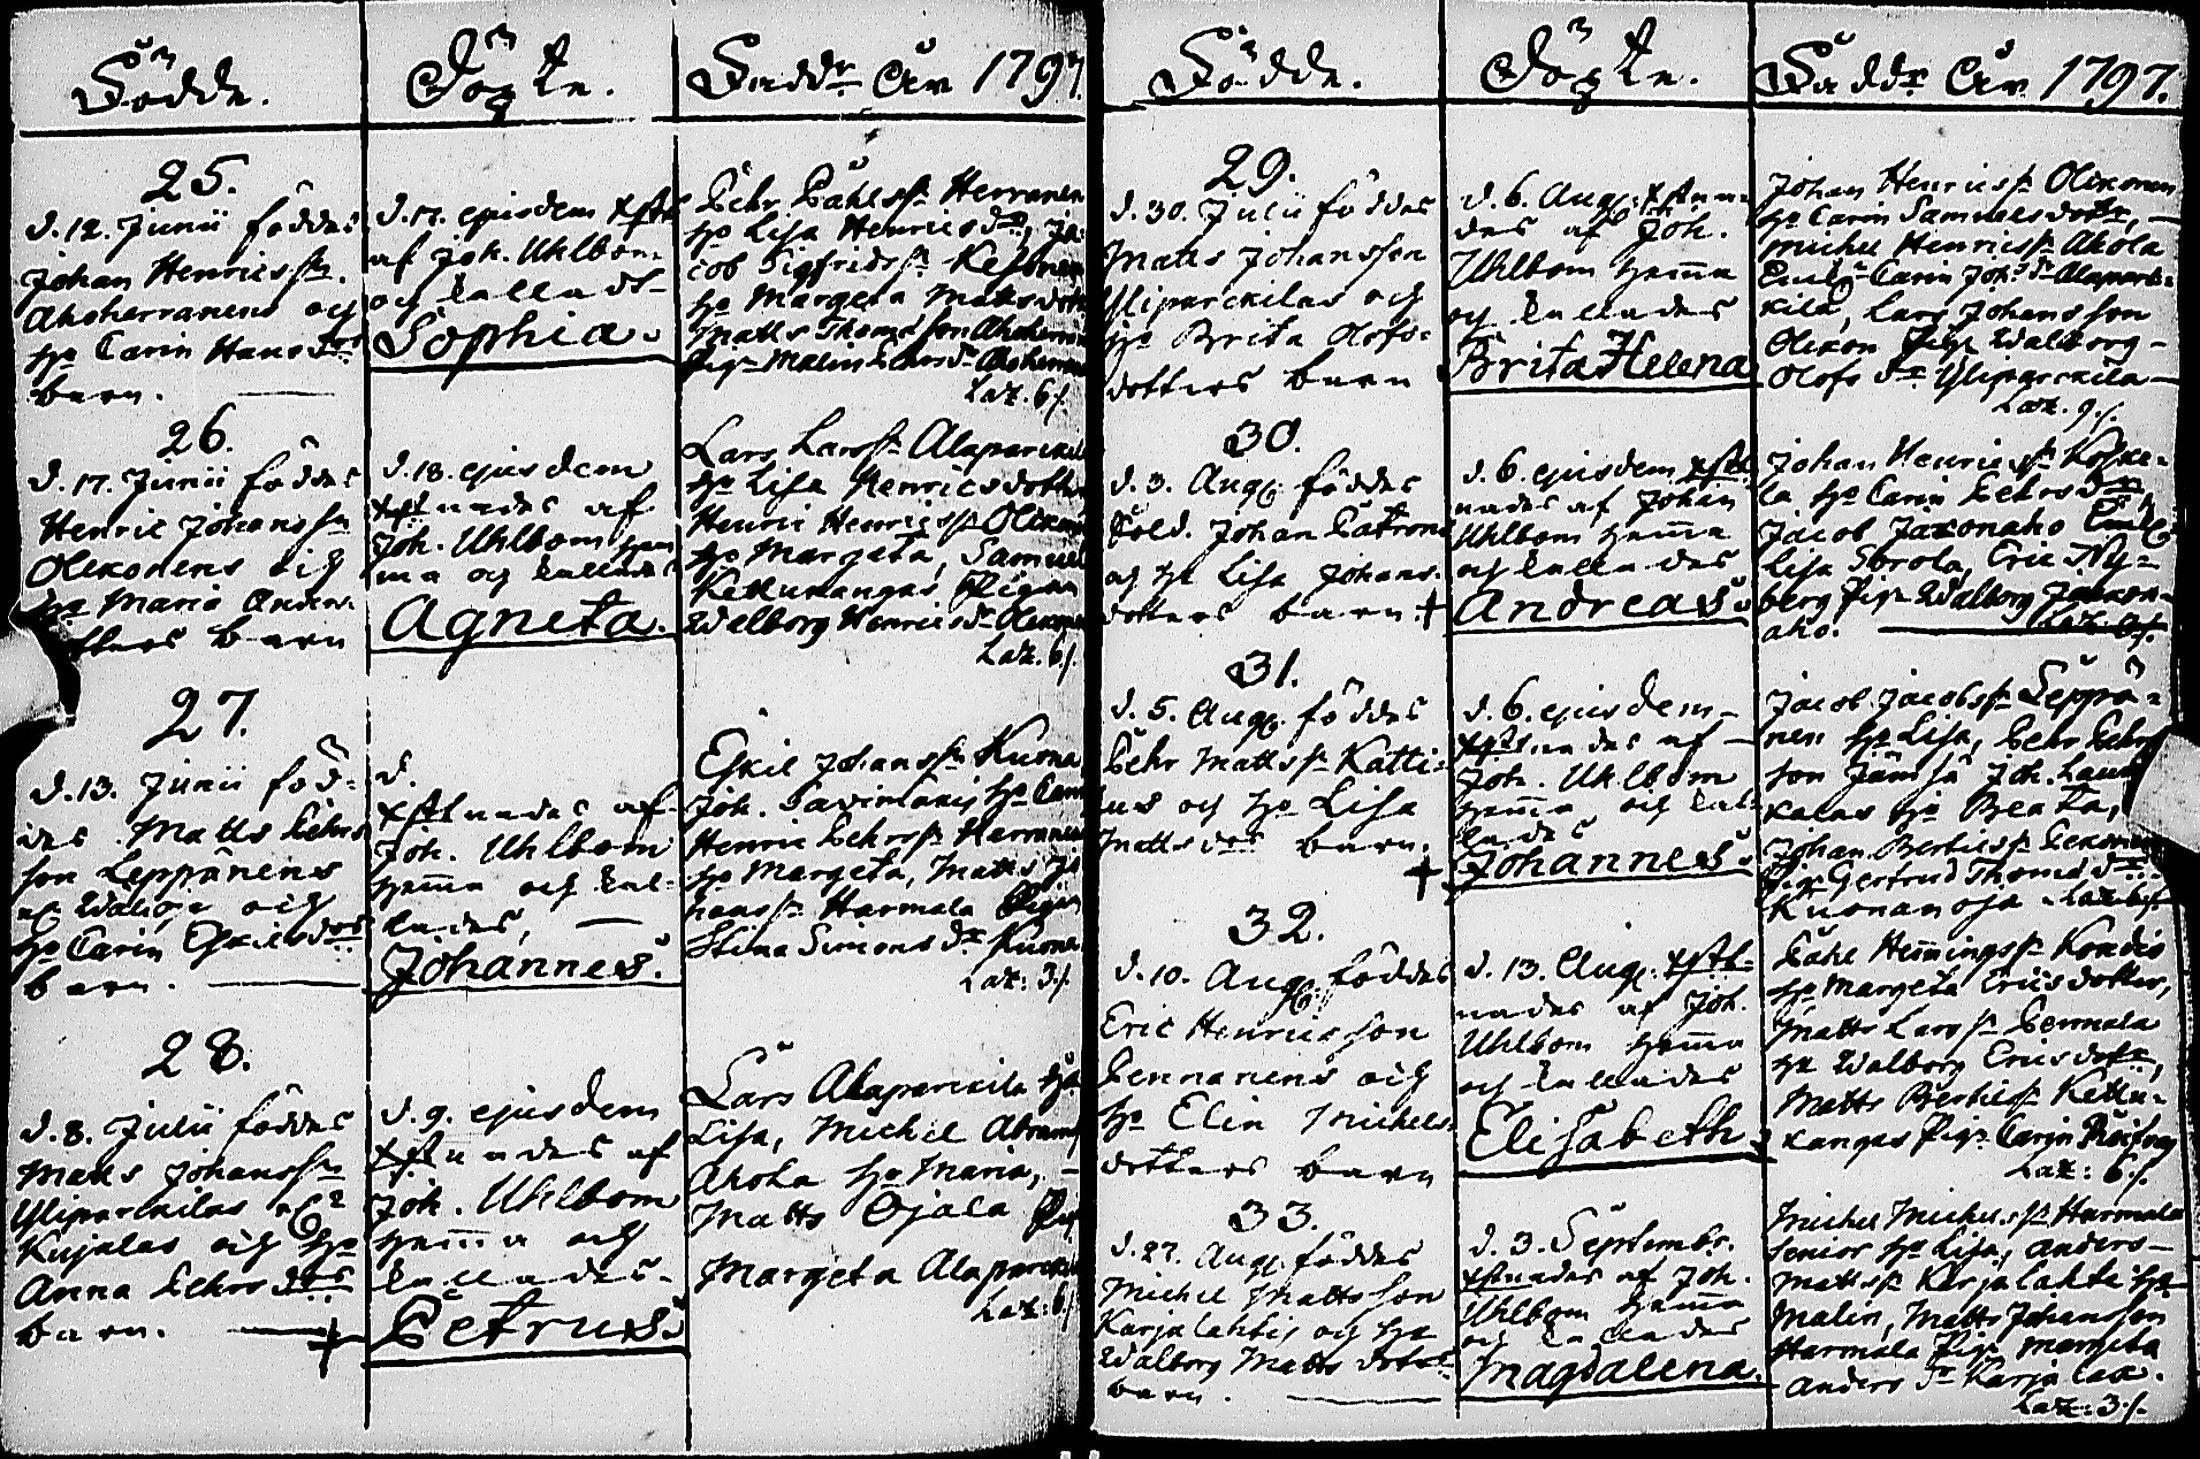 Födde.
Döpte.
Faddr År 1797.
25.
d. 12. Junii föddes
Johan Henricss.
Ahoherranens och
ho Carin Hansdrs
barn.
d. 17. ejusdem xst
af Joh. Uhlbom
och kallads
Sophia.
Pehr Påhlsss. Herranen
ho Lisa Henricsdr, Ja-
cob Sigfridss.
ho Margeta Mattsdotr
Matts Thomasson Ahoherra
Pig. Malin Pehrsdr Ahoherra
Laz. 6 s.
26.
d. 17. Junii föddes
Henric Johanss.
Olikonens och
ho Maria Anders-
dotters barn
d. 18. ejusdem
xstnades af
Joh. Uhlbom hem-
ma och kallades
Agneta.
Lars Larss. Alaparckil
ho Lisa Henricsdotter
Henric Henricss. Olikon
ho Margeta, Samuel
Kettukangas, Pigan
Walborg Henricsdr Olikon
Laz. 6 s.
27.
d. 13. Junii föd-
des Matts Pehrs
son Leppänens
och
ho Carin Eskilsdrs
barn.
d.
xstnades af
Joh. Uhlbom
hemma och kal-
lades,
Johannes.
Eskil Johanss. Kuona
Joh. Savimäkij ho Carin
Henric Pehrss. Harranen
ho Margeta, Matts Jo
hanss. Harmala Pigan
Stina Simonsdr Kuona
Laz: 3 s.
28.
d. 8. Julii föddes
Matts Johanss.
Yliparckilas
Kujalas och ho
Anna Pehrsdrs
barn.
d. 9. ejusdem
xstnades af
Joh. Uhlbom
hemma och
kallades
Petrus.
Lars Alaparckila ho
Lisa, Michel Abrams
Ahola ho Maria,
Matts Ojala Pig
Margeta Alaparckil
Laz: 6 s.
Födde.
Döpte.
Faddr År 1797.
29.
d. 30. Julii föddes
Matts Johansson
Yliparckilas och
ho Brita Olofs-
dotters barn
d. 6. Aug. xstna-
des af Joh.
Uhlbom hemma
och kallades
Brita Helena
Johan Henricss. Olikonen
ho Carin Samuelsdotr,
Michel Henricss. Ahola
Carin Johsdr Alaparc-
kila, Lars Johansson
Olikon Pig. Walborg
Olofsdr Yliparckila
Laz. 9 s.
30.
d. 3. Aug. föddes
Sold. Johan Patrons
och ho Lisa Johans-
dotters barn +
d. 6. ejusdem xst-
nades af Johan
Uhlbom hemma
och kallades
Andreas.
Johan Henricss. Koske-
la ho Carin Pehrsdr
Jacob Jaxonaho
Lisa Sorola, Eric Ny-
berg Pig. Walborg Jaxon-
aho.
31.
d. 5. Aug. föddes
Pehr Mattss. Katti-
lus och ho Lisa
Mattsdrs barn.
+
d. 6. ejusdem
xstnades af
Joh. Uhlbom
hemma och kal-
lades
Johannes.
Jacob Jacobss. Seppä-
nen ho Lisa, Pehr Pehrs
son Jämsä Joh. Lauk
kalas ho Beata,
Johan Bertilss. Pekonen
Pig. Gertrud Thomasdr
Kuonanoja Laz. 6 s.
32.
d. 10. Aug. föddes
Eric Henricsson
Pennanens och
ho Elin Michels-
dotters barn
d. 13. Aug. xst-
nades af Joh.
Uhlbom hemma
och kallades
Elisabeth
Påhl Hemmingss. Kondio
ho Margeta Ericsdotter,
Matts Larss. Permala
ho Walborg Ericsdotr,
Matts Bertilss. Kettu-
kangas Pig. Carin
Laz: 6 s.
33.
d. 27. Aug. föddes
Michel Mattsson
Karjalahtis och ho
Walborg Matts dotrs
barn.
d. 3. Septembr.
xstnades af Joh.
Uhlbom hemma
och kallades
Magdalena.
Michel Michelss. Harmala
senior ho Lisa, Anders
Mattss. Karjalahti ho
Malin, Matts Johansson
Harmala Pig. Margeta
Anders dr Karjalax.
Laz: 3 s.